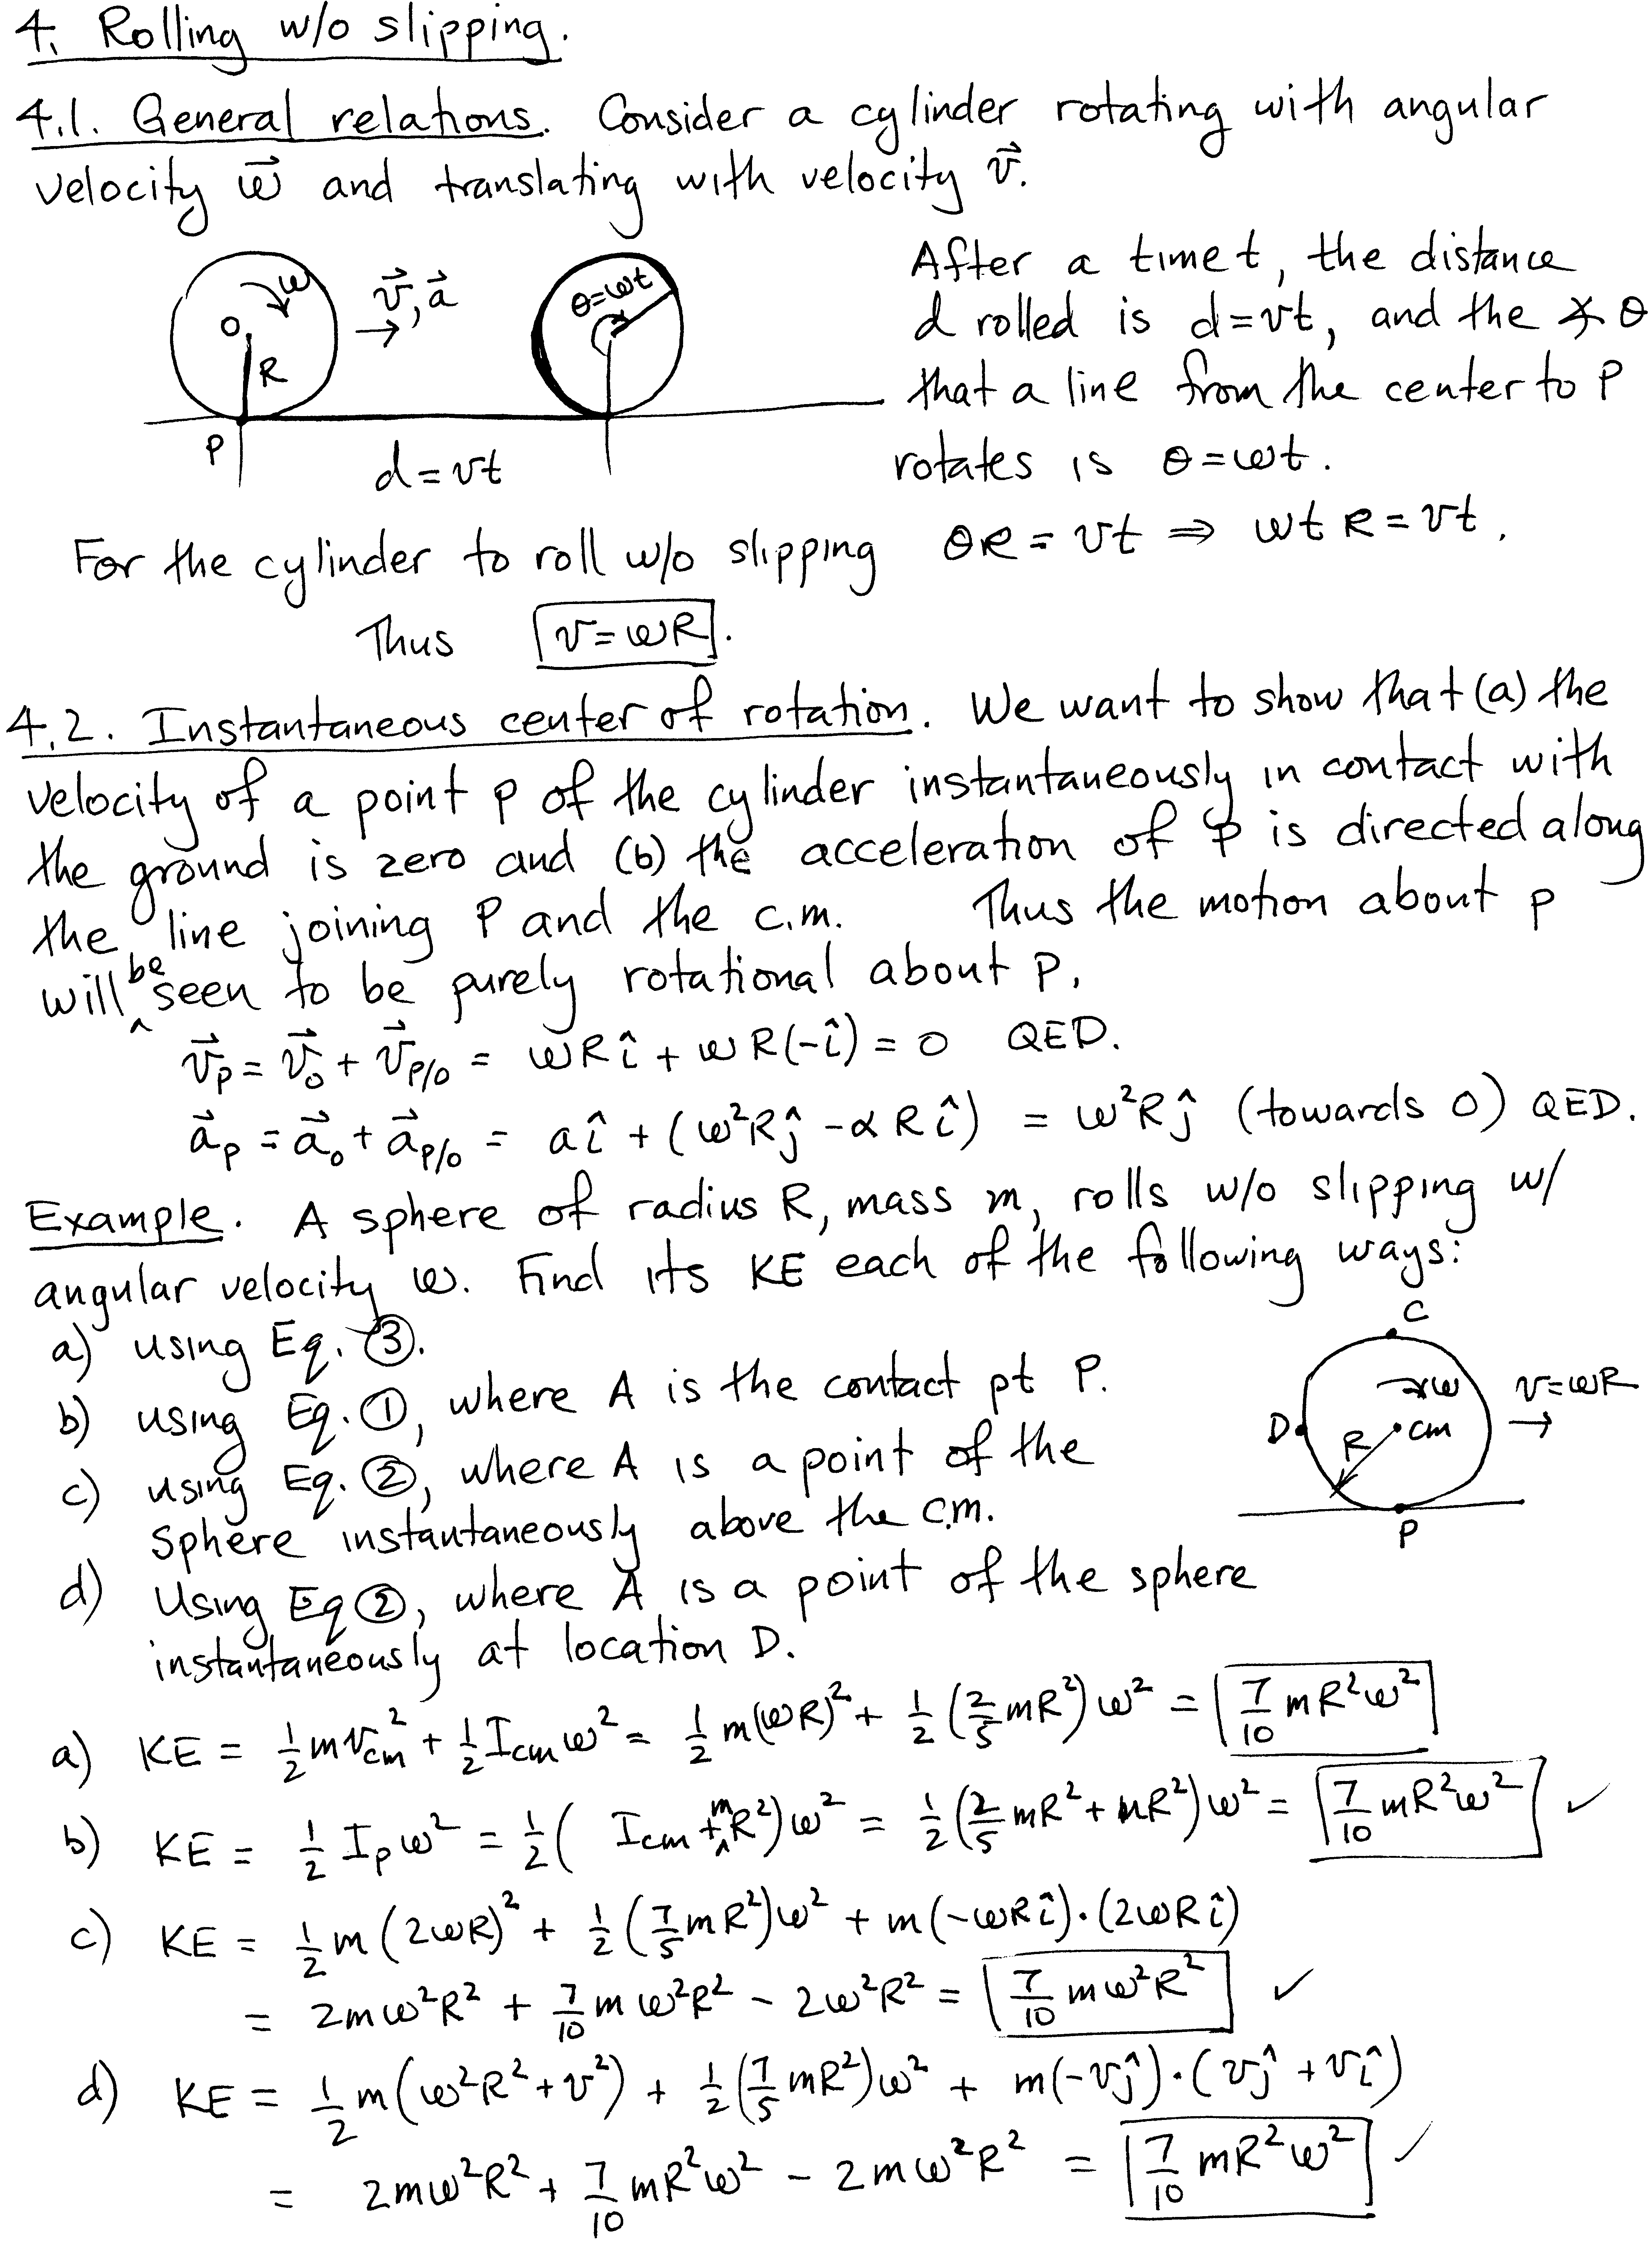 4. Rolling w/o slipping.
4.1. General relations. Consider a cylinder rotating with angular
velocity ω⃗ and translating with velocity v⃗.
ω
v⃗, a⃗
O
R
P
θ=ωt
d=vt
After a time t, the distance
d rolled is d=vt, and the ∡ θ
that a line from the center to P
rotates is θ=ωt.
For the cylinder to roll w/o slipping θR = vt ⇒ ωtR = vt.
Thus v=ωR.
4.2. Instantaneous center of rotation. We want to show that (a) the
velocity of a point P of the cylinder instantaneously in contact with
the ground is zero and (b) the acceleration of P is directed along
the line joining P and the c.m. Thus the motion about P
will be seen to be purely rotational about P.
v⃗_P = v⃗_O + v⃗_P/O = ωR î + ωR(-î) = 0 QED.
a⃗_P = a⃗_O + a⃗_P/O = a î + (ω²R ĵ - αR î) = ω²R ĵ (towards O) QED.
Example. A sphere of radius R, mass m, rolls w/o slipping w/
angular velocity ω. Find its KE each of the following ways:
a) using Eq. ③.
b) using Eq. ①, where A is the contact pt P.
c) using Eq. ②, where A is a point of the
sphere instantaneously above the c.m.
d) Using Eq ②, where A is a point of the sphere
instantaneously at location D.
C
ω
v=ωR
D
R
cm
P
a) KE = ½mv_cm² + ½I_cm ω² = ½m(ωR)² + ½(⅖mR²)ω² = 7/10 mR²ω²
b) KE = ½ I_P ω² = ½( I_cm + mR²)ω² = ½(⅖ mR² + mR²)ω² = 7/10 mR²ω² ✓
c) KE = ½m(2ωR)² + ½(7/5 mR²)ω² + m(-ωR î)·(2ωR î)
= 2mω²R² + 7/10 mω²R² - 2ω²R² = 7/10 mω²R² ✓
d) KE = ½m(ω²R² + v²) + ½(7/5 mR²)ω² + m(-v ĵ)·(v ĵ + v î)
= 2mω²R² + 7/10 mR²ω² - 2mω²R² = 7/10 mR²ω² ✓